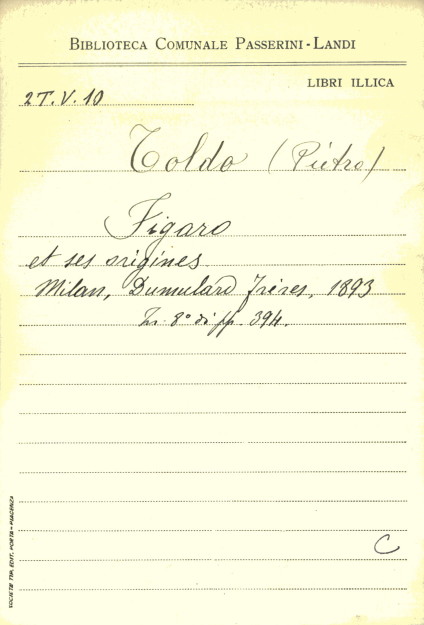 BIBLIOTECA COMUNALE PASSERINI-LANDI
LIBRI ILLICA
2T.V.10
Toldo (Pietro)
Figaro
et ses origines
Milan, Dumolard Frères, 1893
In 8° di pp. 394.
C
SOCIETÀ TIP. EDIT. PORTA - PIACENZA